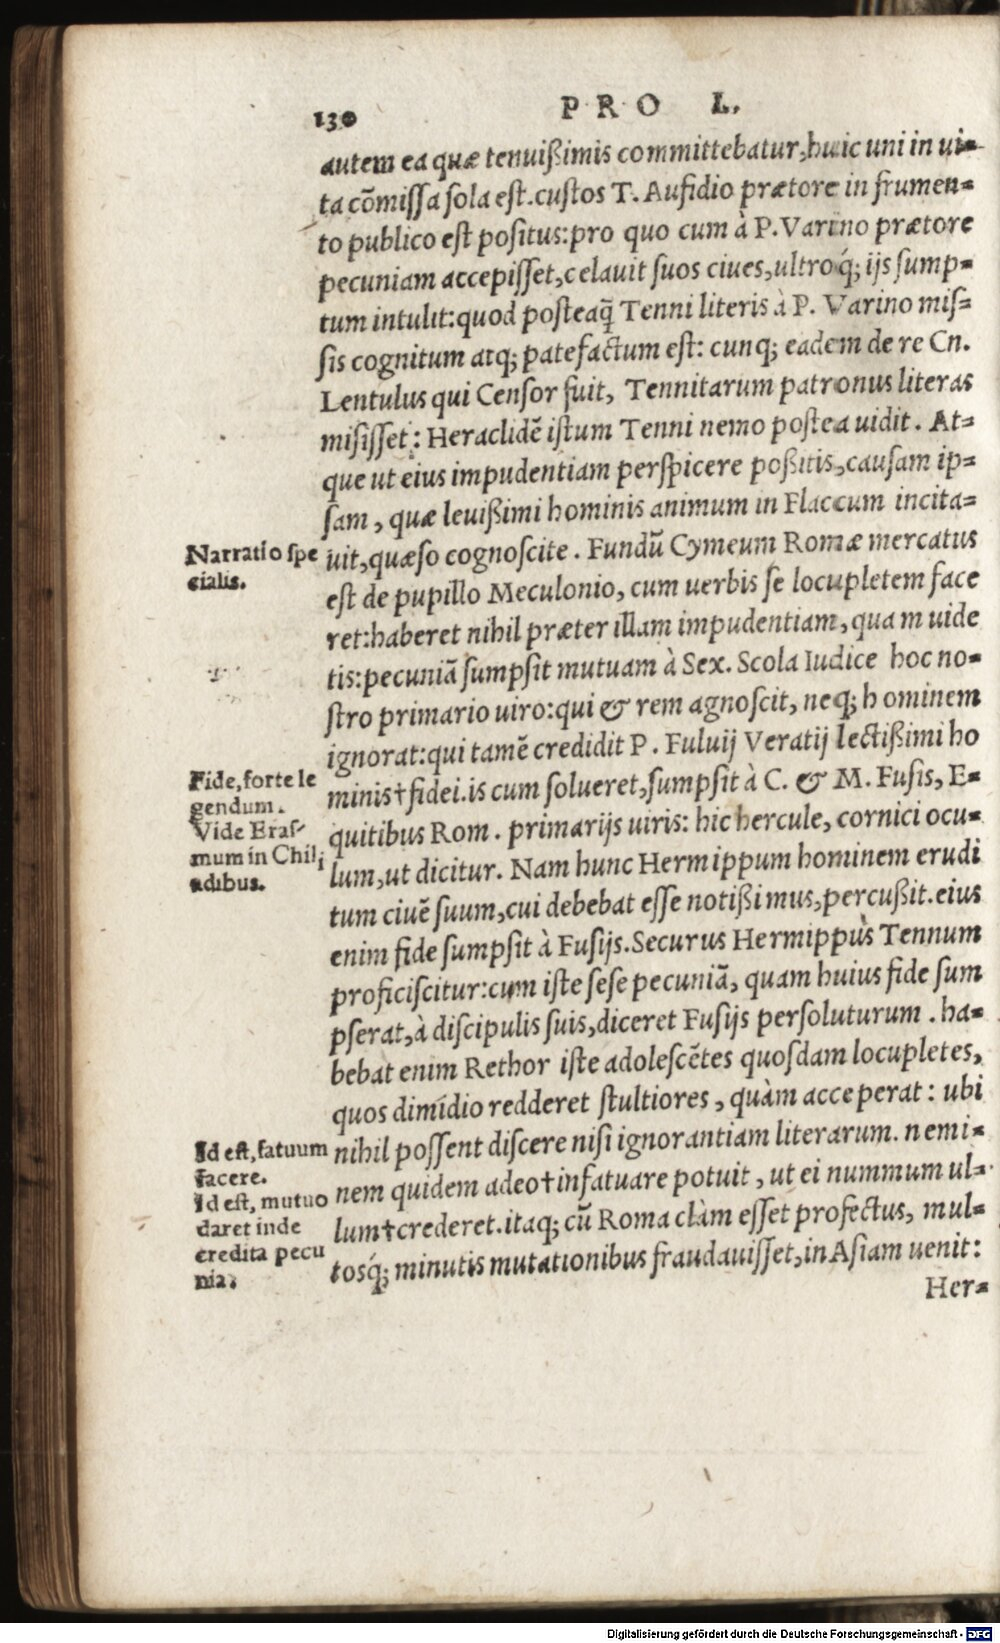 130
PRO L.
autem ea quæ tenuißimis committebatur, huic uni in ui-
ta cõmiſſa ſola eſt. cuſtos T. Aufidio prætore in frumen-
to publico eſt poſitus: pro quo cum à P. Varino prætore
pecuniam accepiſſet, celauit ſuos ciues, ultroq́; ijs ſump-
tum intulit: quod poſteaq̃ Tenni literis à P. Varino miſ-
ſis cognitum atq; patefactum eſt: cunq; eadem de re Cn.
Lentulus qui Cenſor fuit, Tennitarum patronus literas
miſiſſet: Heraclidẽ iſtum Tenni nemo poſtea uidit. At-
que ut eius impudentiam perſpicere poßitis, cauſam ip-
ſam, quæ leuißimi hominis animum in Flaccum incita-
Narratio ſpe
cialis.
uit, quæſo cognoſcite. Fundũ Cymeum Romæ mercatus
eſt de pupillo Meculonio, cum uerbis ſe locupletem face
ret: haberet nihil præter illam impudentiam, quam uide
tis: pecuniã ſumpſit mutuam à Sex. Scola Iudice hoc no-
ſtro primario uiro: qui & rem agnoſcit, neq; hominem
ignorat: qui tamẽ credidit P. Fuluij Veratij lectißimi ho
Fide, forte le
gendum.
Vide Eraſ-
mum in Chili
adibus.
minis † fidei. is cum ſolueret, ſumpſit à C. & M. Fufis, E-
quitibus Rom. primarijs uiris: hic hercule, cornici ocu-
lum, ut dicitur. Nam hunc Hermippum hominem erudi
tum ciuẽ ſuum, cui debebat eſſe notißimus, percußit. eius
enim fide ſumpſit à Fufijs. Securus Hermippus Tennum
proficiſcitur: cum iſte ſeſe pecuniã, quam huius fide ſum
pſerat, à diſcipulis ſuis, diceret Fufijs perſoluturum. ha-
bebat enim Rethor iſte adoleſcẽtes quoſdam locupletes,
quos dimidio redderet ſtultiores, quàm acceperat: ubi
Id eſt, fatuum
facere.
Id eſt, mutuo
daret inde
credita pecu
nia.
nihil poſſent diſcere niſi ignorantiam literarum. nemi-
nem quidem adeo † infatuare potuit, ut ei nummum ul-
lum † crederet. itaq; cũ Roma clàm eſſet profectus, mul-
tosq́; minutis mutationibus fraudauiſſet, in Aſiam uenit:
Her-
Digitalisierung gefördert durch die Deutsche Forschungsgemeinschaft - DFG